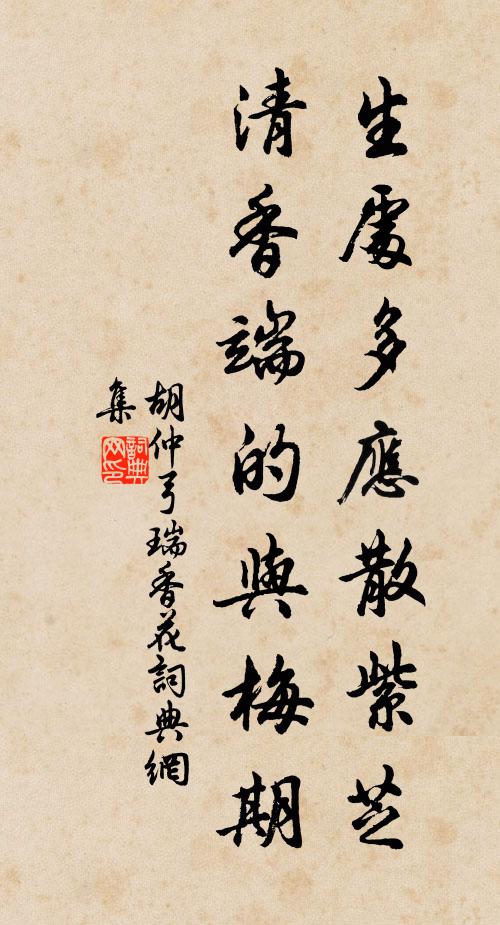 生處多應散紫芝
清香端的與梅期
胡仲弓瑞香花詞典網
集
詞典網印